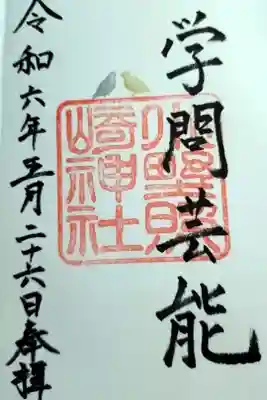 学問芸能
小野照
崎神社
令和六年五月二十六日奉拝